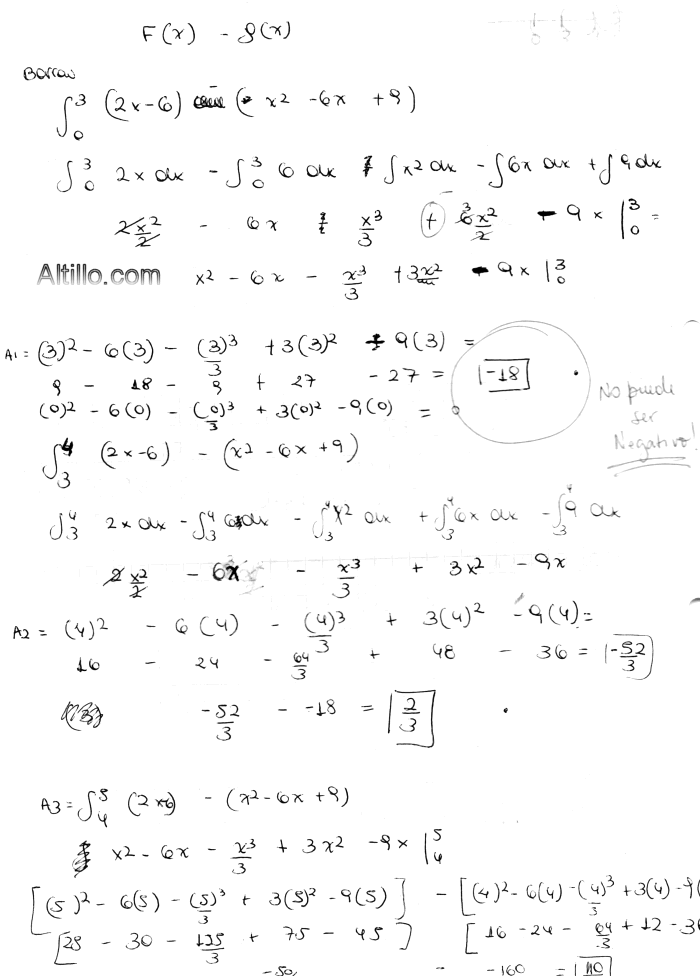 F(x) - g(x)
Borrow
∫₀³ (2x-6) (x2 -6x +9)
∫₀³ 2x dx - ∫₀³ 6 dx ∫x2 dx - ∫6x dx + ∫9 dx
2x²/2 - 6x x³/3 + 6x²/2 - 9x |₀³ =
Altillo.com
x² - 6x - x³/3 + 3x² - 9x |₀³
A1 = (3)² - 6(3) - (3)³/3 + 3(3)² 9(3) =
9 - 18 - 9 + 27 - 27 = |-18|
(0)² - 6(0) - (0)³/3 + 3(0)² - 9(0) = 0
No puede
ser
Negativo!
∫₃⁴ (2x-6) - (x² - 6x + 9)
∫₃⁴ 2x dx - ∫₃⁴ 6 dx - ∫₃⁴ x² dx + ∫₃⁴ 6x dx - ∫₃⁴ 9 dx
2x²/2 - 6x - x³/3 + 3x² - 9x
A2 = (4)² - 6(4) - (4)³/3 + 3(4)² - 9(4) =
16 - 24 - 64/3 + 48 - 36 = |-52/3|
-52/3 - -18 = |2/3|
A3 = ∫₄⁵ (2x-6) - (x² - 6x + 9)
x² - 6x - x³/3 + 3x² - 9x |₄⁵
[(5)² - 6(5) - (5)³/3 + 3(5)² - 9(5)] - [(4)² - 6(4) - (4)³/3 + 3(4) - 9(
[25 - 30 - 125/3 + 75 - 45] [16 - 24 - 64/3 + 12 - 36
-50 - -160 =